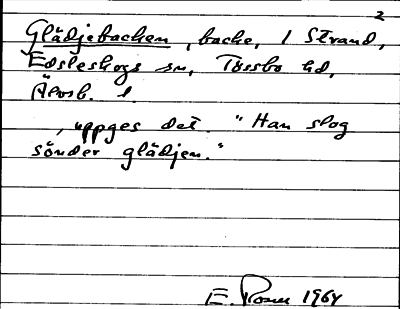 2
Glädjebacken, backe, i Strand,
Edsleskogs sn, Tössbo hd,
Älvsb. l.
, uppges det. "Han slog
sönder glädjen."
E. Rosell 1964